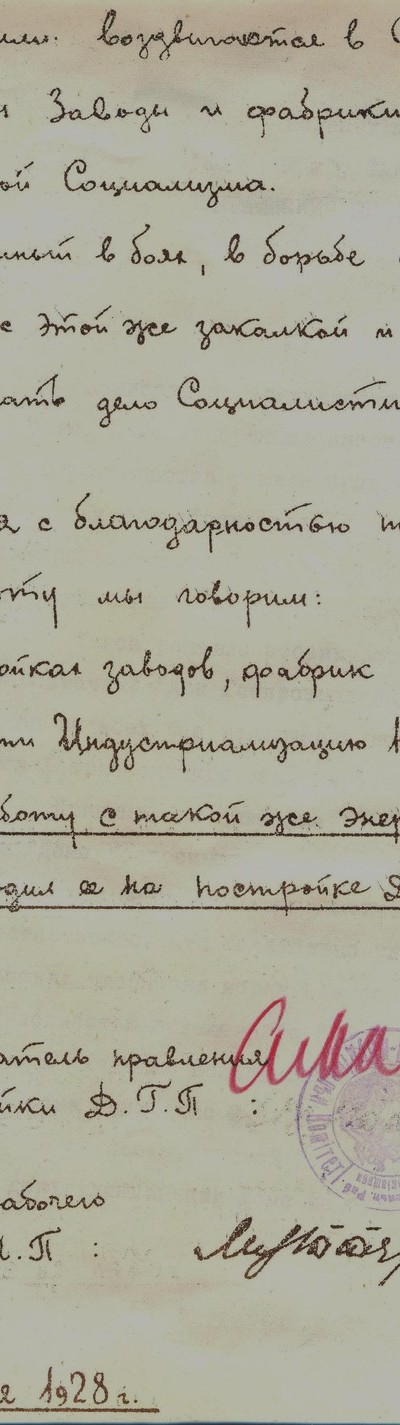 воздвигаются в
Заводы и фабрики
ой Социализма.
нный в боях, в борьбе
с этой же закалкой и
ать дело Социалисти
с благодарностью
оту мы говорим:
ойках заводов, фабрик
ти Индустриализацию
боту с такой же энер
одил ее на постройке Д
атель правления
йки Д.Г.П :
абочего
.П :
1928 г.